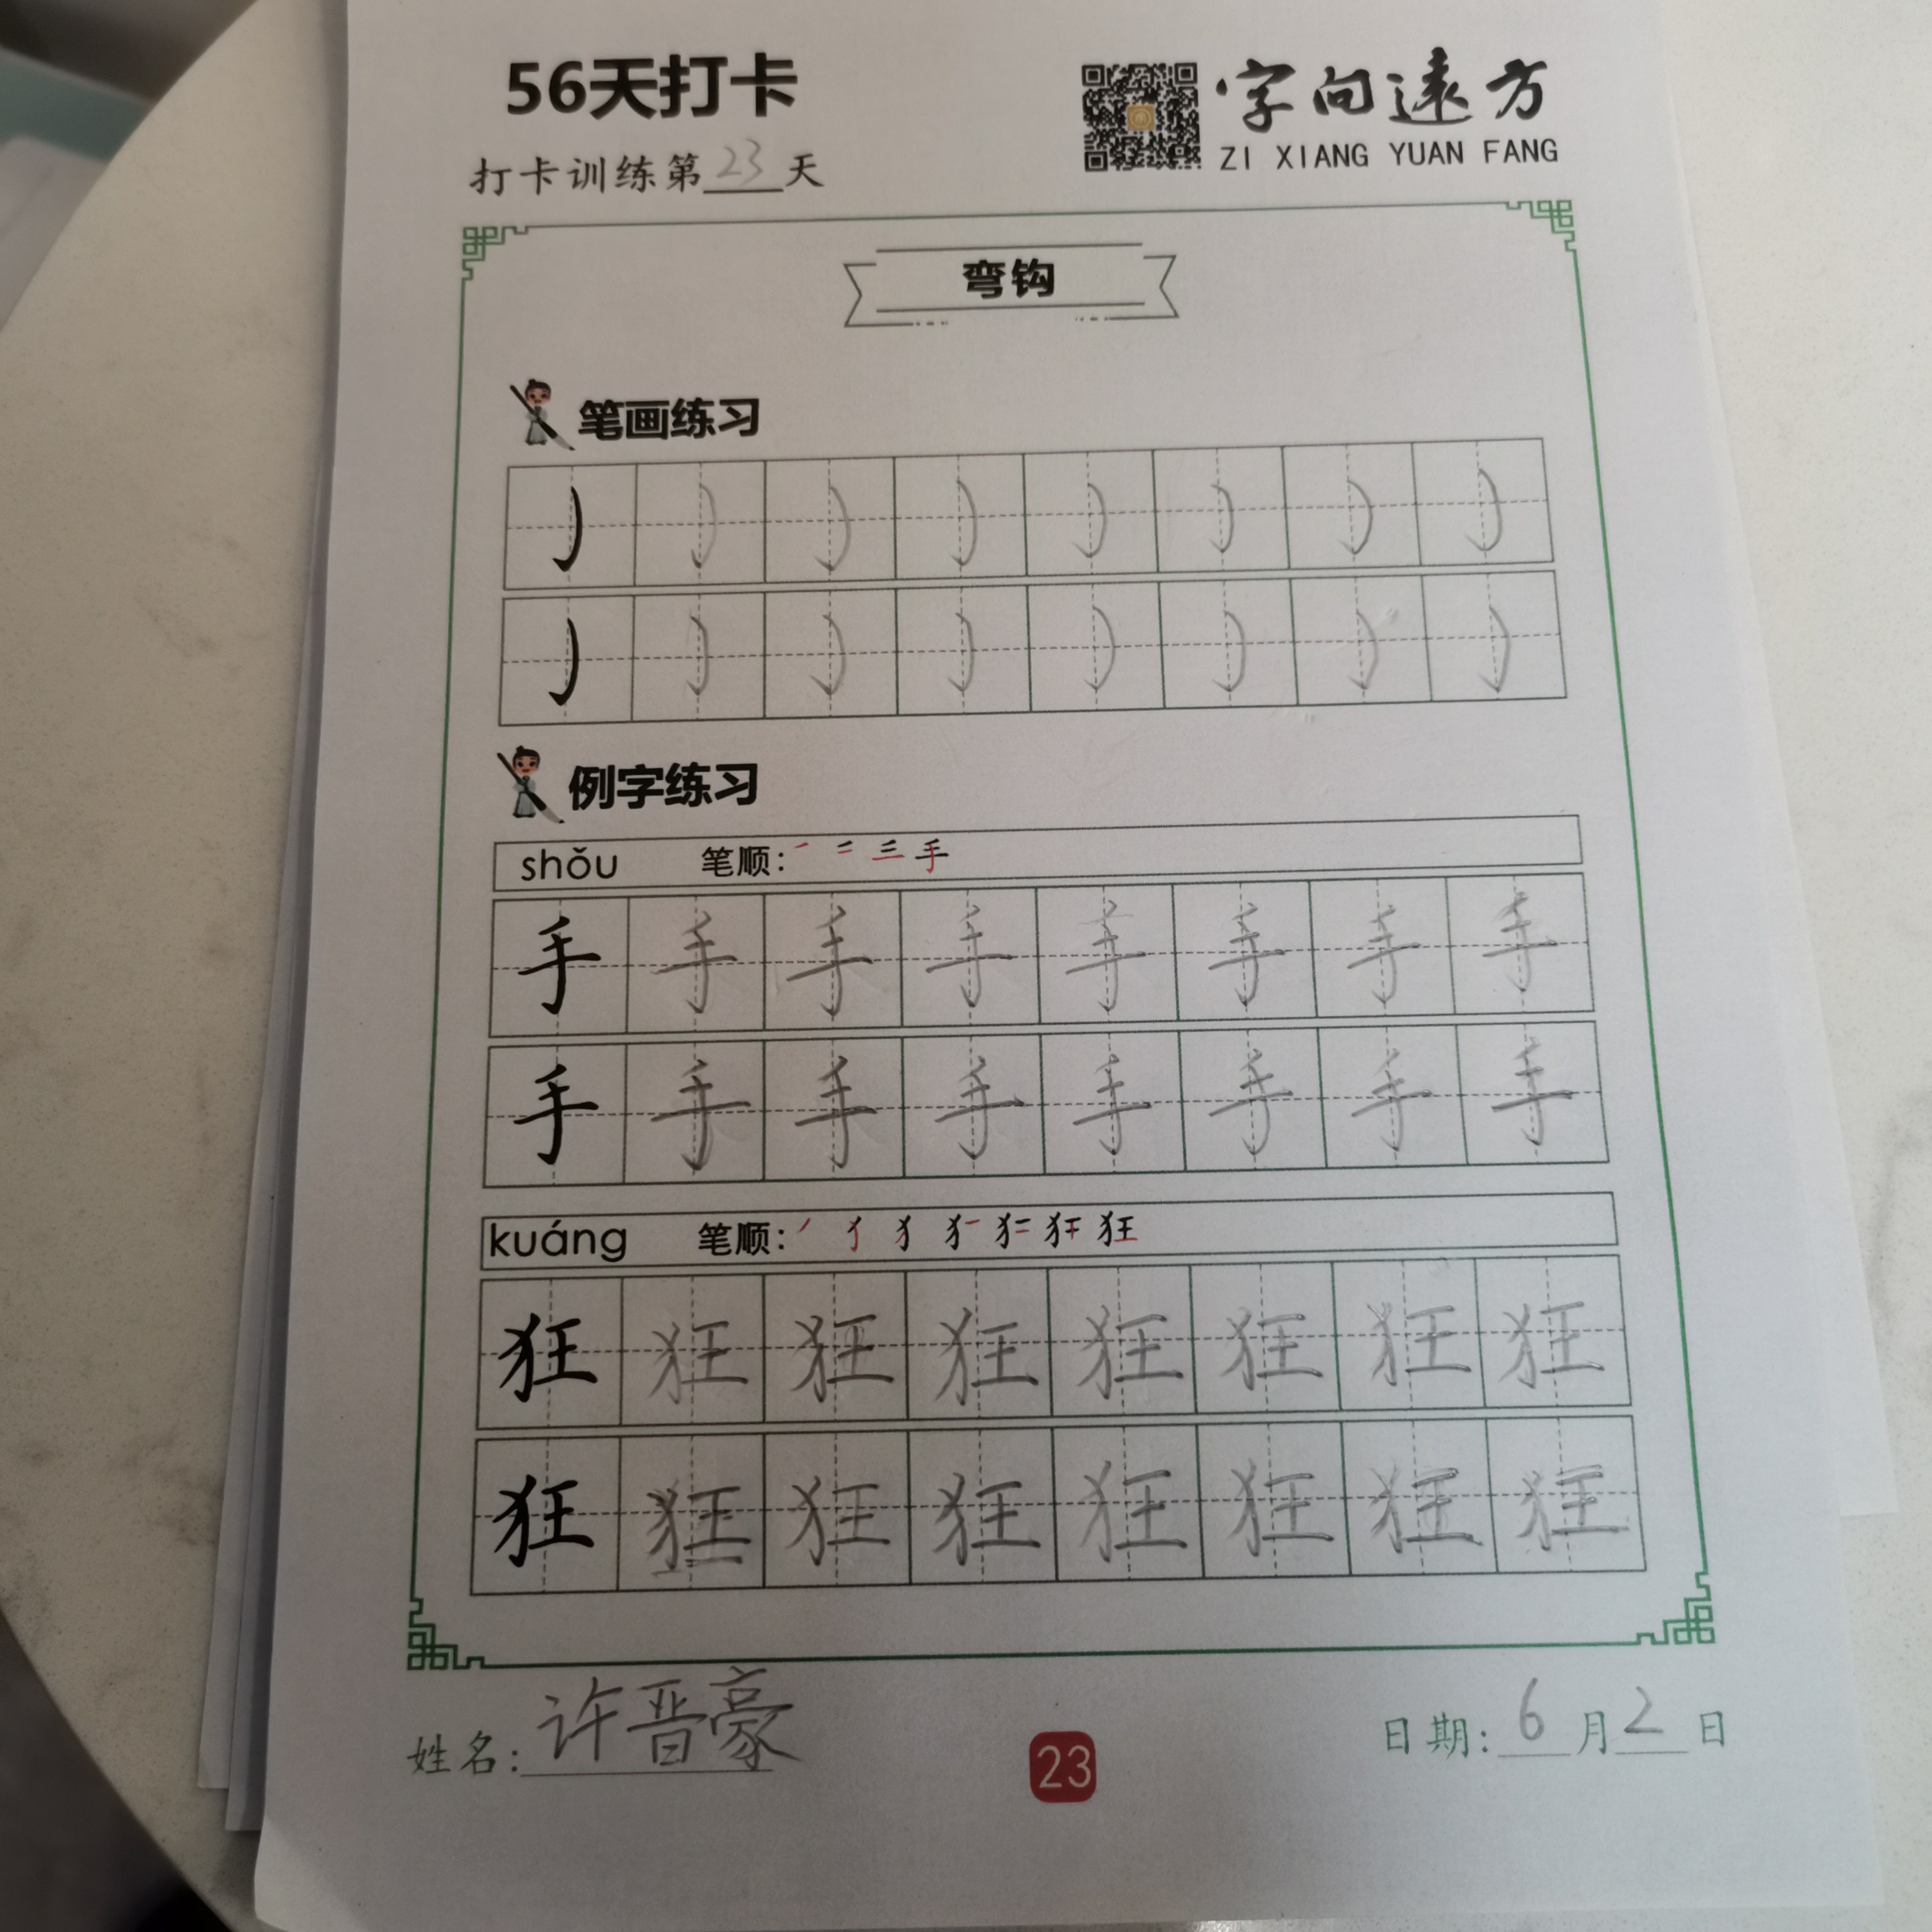 56天打卡
字向远方
ZI XIANG YUAN FANG
打卡训练第23天
弯钩
笔画练习
例字练习
shǒu 笔顺: 手
手 手 手 手 手 手 手 手
手 手 手 手 手 手 手 手
kuáng 笔顺: 狂
狂 狂 狂 狂 狂 狂 狂 狂
狂 狂 狂 狂 狂 狂 狂 狂
姓名: 许晋豪
23
日期: 6月2日